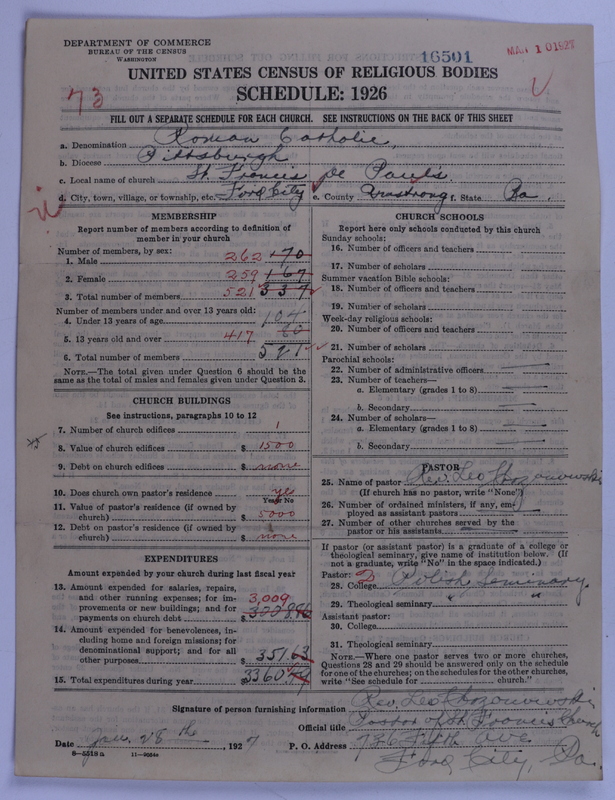 DEPARTMENT OF COMMERCE
BUREAU OF THE CENSUS
WASHINGTON
16501
MAR 10 1927
UNITED STATES CENSUS OF RELIGIOUS BODIES
SCHEDULE: 1926
73
FILL OUT A SEPARATE SCHEDULE FOR EACH CHURCH. SEE INSTRUCTIONS ON THE BACK OF THIS SHEET
a. Denomination Roman Catholic
b. Diocese Pittsburgh
c. Local name of church St. Francis De Paul's
d. City, town, village, or township, etc. Ford City e. County Armstrong f. State Pa.
MEMBERSHIP
Report number of members according to definition of member in your church
Number of members, by sex:
1. Male 262 170
2. Female 259 167
3. Total number of members 521 337
Number of members under and over 13 years old:
4. Under 13 years of age 104
5. 13 years old and over 417
6. Total number of members 521
NOTE.—The total given under Question 6 should be the same as the total of males and females given under Question 3.
CHURCH BUILDINGS
See instructions, paragraphs 10 to 12
7. Number of church edifices 1
8. Value of church edifices $ 1500
9. Debt on church edifices $ none
10. Does church own pastor's residence yes
Yes or No
11. Value of pastor's residence (if owned by church) $ 5000
12. Debt on pastor's residence (if owned by church) $ none
EXPENDITURES
Amount expended by your church during last fiscal year
13. Amount expended for salaries, repairs, and other running expenses; for improvements or new buildings; and for payments on church debt $ 3,009
14. Amount expended for benevolences, including home and foreign missions; for denominational support; and for all other purposes $ 351 63
15. Total expenditures during year $ 3360
CHURCH SCHOOLS
Report here only schools conducted by this church
Sunday schools:
16. Number of officers and teachers
17. Number of scholars
Summer vacation Bible schools:
18. Number of officers and teachers
19. Number of scholars
Week-day religious schools:
20. Number of officers and teachers
21. Number of scholars
Parochial schools:
22. Number of administrative officers
23. Number of teachers—
a. Elementary (grades 1 to 8)
b. Secondary
24. Number of scholars—
a. Elementary (grades 1 to 8)
b. Secondary
PASTOR
25. Name of pastor Rev. Leo
(If church has no pastor, write "None")
26. Number of ordained ministers, if any, employed as assistant pastors
27. Number of other churches served by the pastor or his assistants
If pastor (or assistant pastor) is a graduate of a college or theological seminary, give name of institution below. (If not a graduate, write "No" in the space indicated.)
Pastor: 2
28. College Polish Seminary
29. Theological seminary " "
Assistant pastor:
30. College
31. Theological seminary
NOTE.—Where one pastor serves two or more churches, Questions 28 and 29 should be answered only on the schedule for one of the churches; on the schedules for the other churches, write "See schedule for church."
Signature of person furnishing information Rev. Leo
Official title Pastor of St. Francis Church
Date Jan. 28 th, 1927 P. O. Address 736 Fifth Ave
Ford City, Pa.
8—5518 a 11—9084a